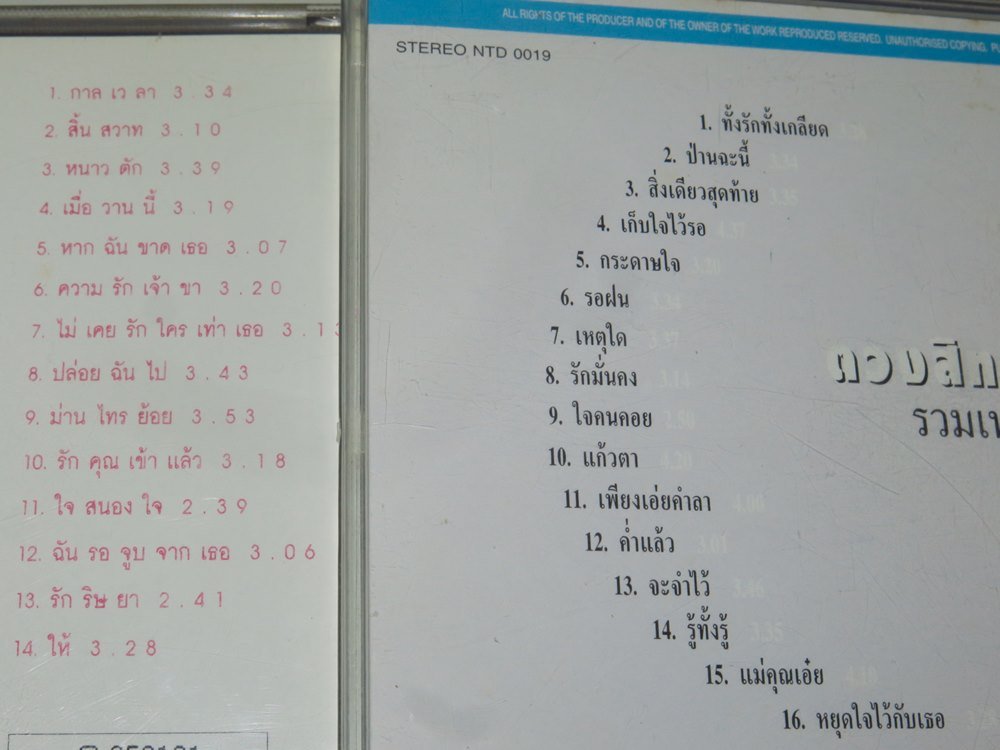 1. กาล เว ลา 3.34
2. สิ้น สวาท 3.10
3. หนาว ตัก 3.39
4. เมื่อ วาน นี้ 3.19
5. หาก ฉัน ขาด เธอ 3.07
6. ความ รัก เจ้า ขา 3.20
7. ไม่ เคย รัก ใคร เท่า เธอ
8. ปล่อย ฉัน ไป 3.43
9. ม่าน ไทร ย้อย 3.53
10. รัก คุณ เข้า แล้ว 3.18
11. ใจ สนอง ใจ 2.39
12. ฉัน รอ จูบ จาก เธอ 3.06
13. รัก ริษ ยา 2.41
14. ให้ 3.28
ALL RIGHTS OF THE PRODUCER AND OF THE OWNER OF THE WORK REPRODUCED RESERVED. UNAUTHORISED COPYING,
STEREO NTD 0019
1. ทั้งรักทั้งเกลียด
2. ป่านฉะนี้ 3.34
3. สิ่งเดียวสุดท้าย 3.35
4. เก็บใจไว้รอ 4.37
5. กระดาษใจ 3.20
6. รอฝน 3.34
7. เหตุใด 3.37
8. รักมั่นคง 3.14
9. ใจคนคอย 2.50
10. แก้วตา 4.20
11. เพียงเอ่ยคำลา 4.06
12. ค่ำแล้ว 3.01
13. จะจำไว้ 3.46
14. รู้ทั้งรู้
15. แม่คุณเอ๋ย
16. หยุดใจไว้กับเธอ